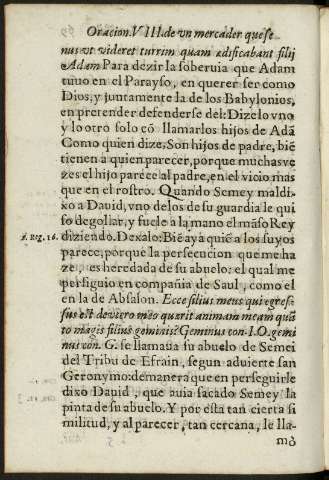 Oracion. VIII. de vn mercader que se
nus vt videret turrim quam ædificabant filij
Adam Para dezir la soberuia que Adam
tuuo en el Parayso, en querer ser como
Dios, y juntamente la de los Babylonios,
en pretender defenderse del: Dizelo vno
y lo otro solo cō llamarlos hijos de Adā
Como quien dize, Son hijos de padre, biē
tienen a quien parecer, porque muchas ve
zes el hijo parece al padre, en el vicio mas
que en el rostro. Quando Semey maldi-
xo a David, vno de los de su guardia le qui
so degollar, y fuele a la mano el māso Rey
1. Reg. 16. diziendo. Dexalo: Biē aya quiē a los suyos
parece, porque la persecucion que me ha
ze, es heredada de su abuelo: el qual me
persiguio en compañia de Saul, como el
en la de Absalon. Ecce filius meus qui egres-
sus est de vtero meo quærit animam meam quā
to magis filius geminis? Geminus con. I.O. gemi
nus con. G. se llamaua su abuelo de Semei
del Tribu de Efrain, segun aduierte san
Geronymo: demanera que en perseguirle
dixo Dauid, que auia sacado Semey la
pinta de su abuelo. Y por esta tan cierta si
militud, y al parecer, tan cercana, le lla-
mò